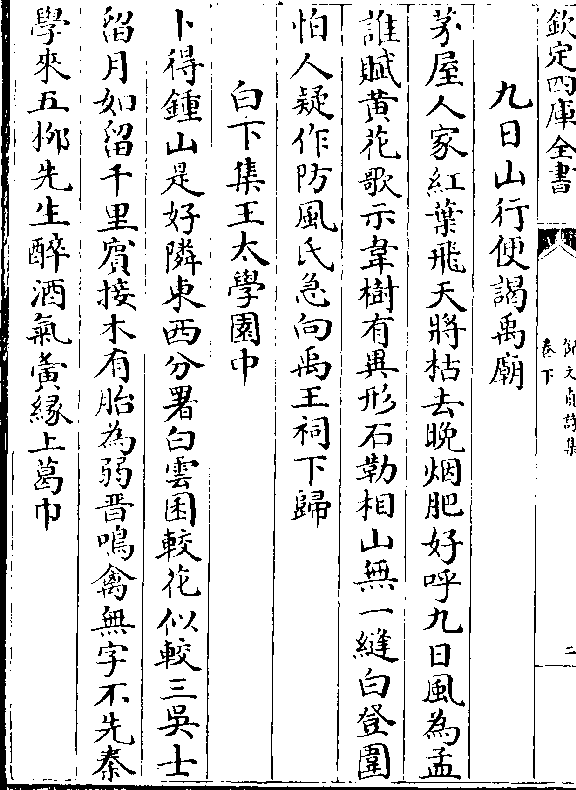 欽定四庫全書
倪文貞詩集
卷下
二
九日山行便謁禹廟
茅屋人家紅葉飛天將枯去晚烟肥好呼九日風為孟
誰賦黄花歌示韋樹有異形石勒相山無一縫白登圍
怕人疑作防風氏急向禹王祠下歸
白下集王太學園中
卜得鍾山是好隣東西分署白雲囷較花似較三吳士
留月如留千里賓接木有胎為弱晉鳴禽無字不先秦
學來五柳先生醉酒氣夤縁上葛巾